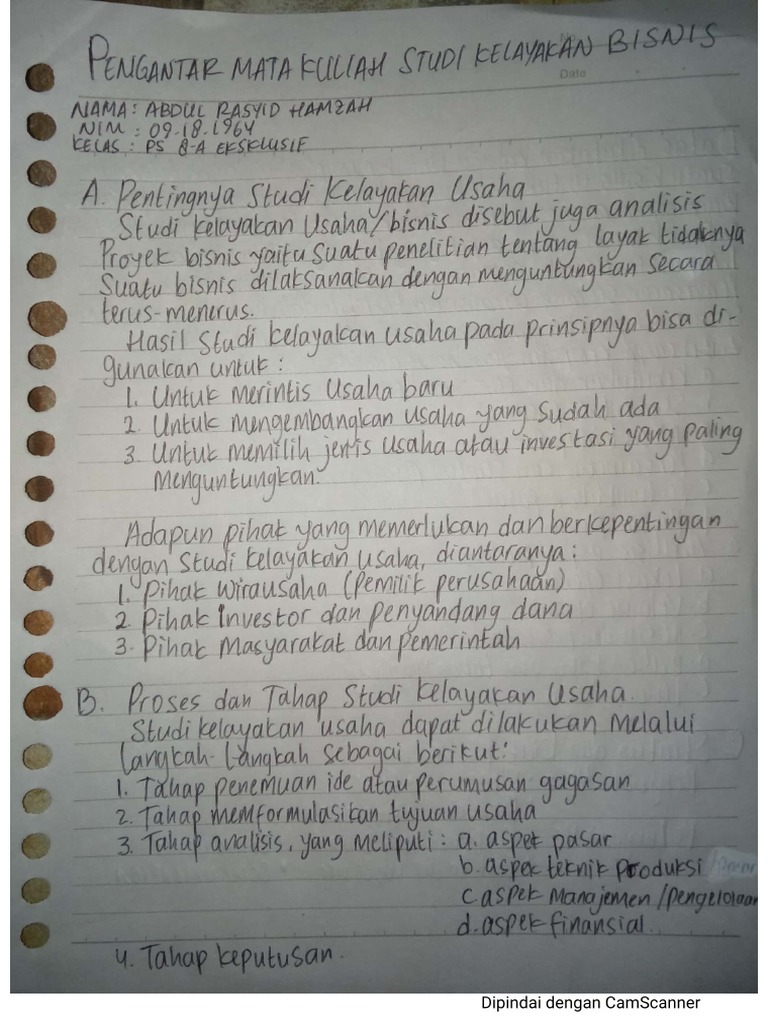 PENGANTAR MATA KULIAH STUDI KELAYAKAN BISNIS
No
Date
NAMA : ABDUL RASYID HAMZAH
NIM : 09.18.1964
KELAS : PS 8-A EKSKLUSIF
A. Pentingnya Studi Kelayakan Usaha
Studi Kelayakan Usaha/bisnis disebut juga analisis
Proyek bisnis yaitu suatu penelitian tentang layak tidaknya
Suatu bisnis dilaksanakan dengan menguntungkan secara
terus-menerus.
Hasil Studi kelayakan usaha pada prinsipnya bisa di-
gunakan untuk :
1. Untuk merintis Usaha baru
2. Untuk mengembangkan usaha yang sudah ada
3. Untuk memilih jenis usaha atau investasi yang paling
menguntungkan.
Adapun pihak yang memerlukan dan berkepentingan
dengan Studi kelayakan usaha, diantaranya :
1. Pihak Wirausaha (Pemilik perusahaan)
2. Pihak Investor dan penyandang dana
3. Pihak Masyarakat dan pemerintah
B. Proses dan Tahap Studi Kelayakan Usaha.
Studi kelayakan usaha dapat dilakukan Melalui
langkah-langkah sebagai berikut :
1. Tahap penemuan ide atau perumusan gagasan
2. Tahap memformulasikan tujuan usaha
3. Tahap analisis, yang meliputi : a. aspek pasar
b. aspek teknik produksi
c aspek Manajemen /pengelolaan
d. aspek finansial.
4. Tahap keputusan.
Dipindai dengan CamScanner